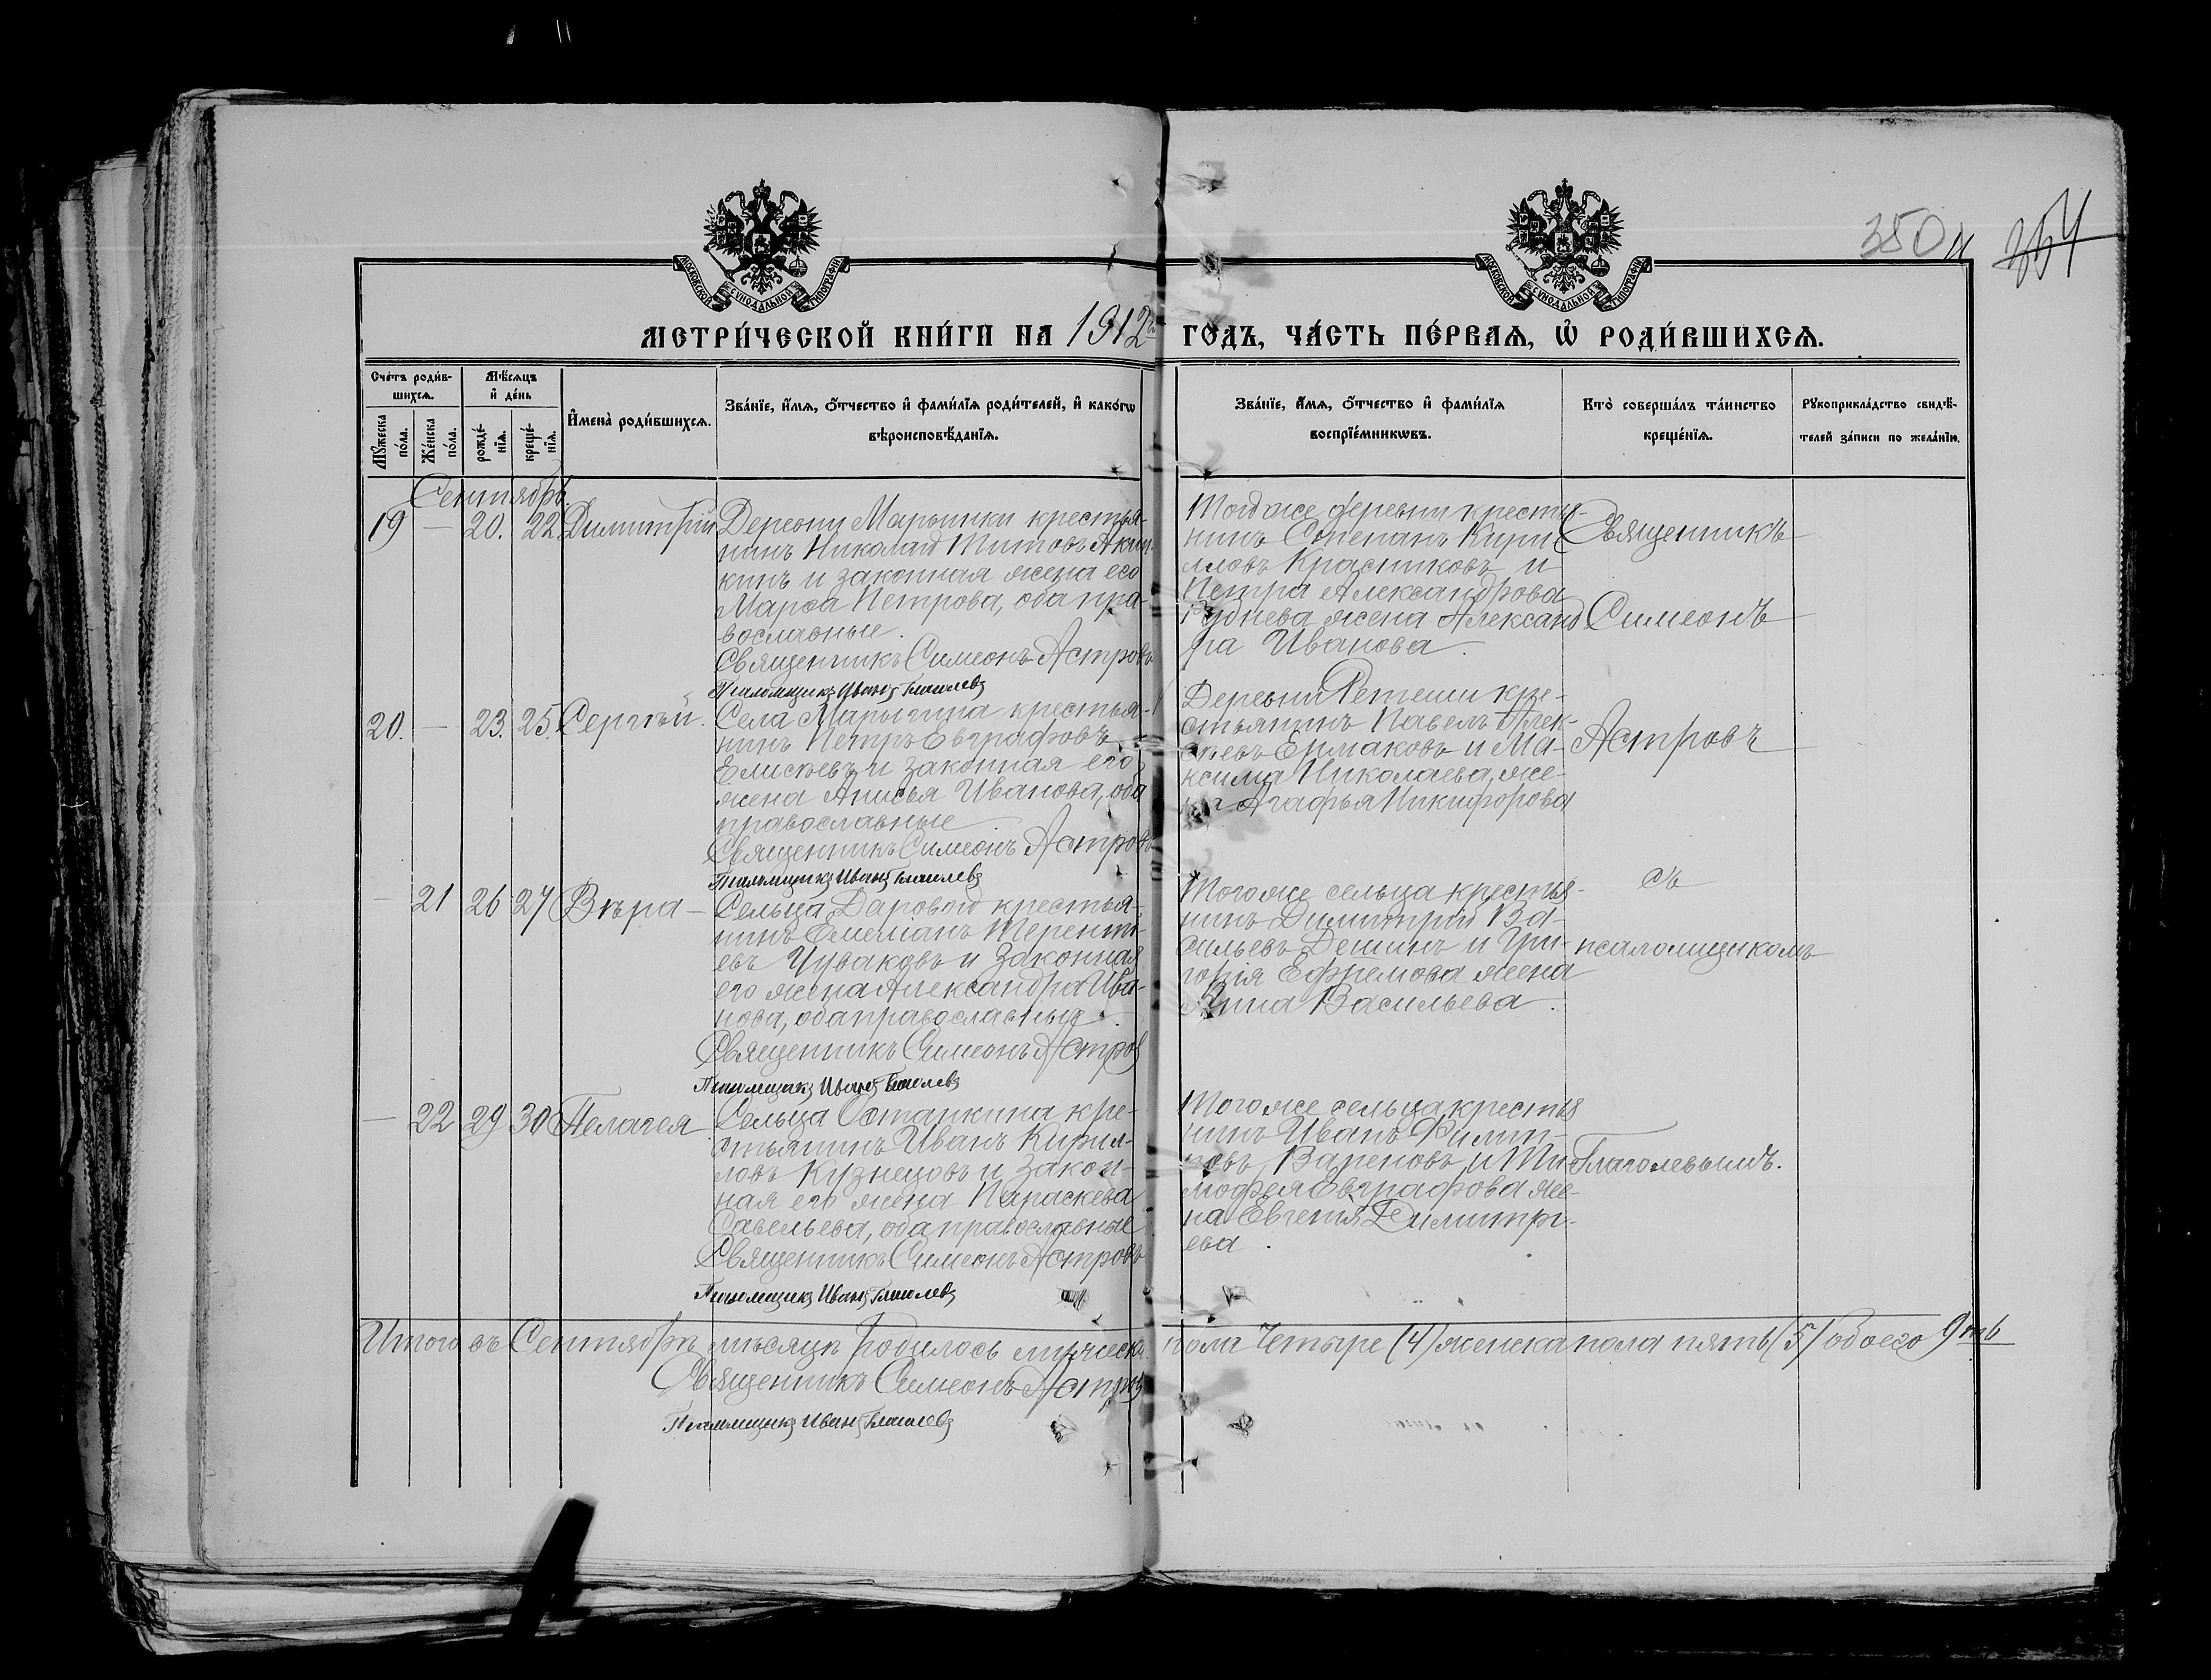 350
354
МОСКОВСКОЙ СѴНОДАЛЬНОЙ ТИПОГРАФІИ
МОСКОВСКОЙ СѴНОДАЛЬНОЙ ТИПОГРАФІИ
МЕТРИ́ЧЕСКОЙ КНИ́ГИ НА 1912й ГОДЪ, ЧА́СТЬ ПЕ́РВАѦ, Ѽ РОДИ́ВШИХСѦ.
Сче́тъ роди́в-
шихсѧ.
Мѣ́сѧцъ
и҆ де́нь
Мꙋ́жеска
по́ла.
Же́нска
по́ла.
рожде́-
нїѧ.
креще́-
нїѧ.
И҆мена̀ роди́вшихсѧ.
Зва́нїе, и҆́мѧ, ѻ҆́тчество и҆ фами́лїѧ роди́телей, и҆ како́гѡ
вѣроисповѣ́данїѧ.
Зва́нїе, и҆́мѧ, ѻ҆́тчество и҆ фами́лїѧ
воспрїе́мникѡвъ.
Кто̀ соверша́лъ та́инство
креще́нїѧ.
Рꙋкоприкла́дство свидѣ́-
телей за́писи по жела́нїю.
Сентябрь.
19 — 20. 22. Димитрій
Деревни Марьинки крестья-
нинъ Николай Титовъ
кинъ и законная жена его
Марѳа Петрова, оба пра-
вославные.
Священникъ Симеонъ Астровъ
Псаломщикъ Иванъ Глаголевъ
Той же деревни крестья-
нинъ Степанъ Кири-
лловъ Красниковъ и
Петра Александрова
Руднева жена Александ-
ра Иванова.
Священникъ
Симеонъ
20. — 23. 25. Сергѣй.
Села Марыгина крестья-
нинъ Петръ Евграфовъ
Елисѣевъ и законная его
жена Анисья Иванова, оба
православные
Священникъ Симеонъ Астровъ
Псаломщикъ Иванъ Глаголевъ
Деревни Ретеши кре-
стьянинъ Павелъ Алек-
сѣевъ Ермаковъ и Ма-
ксима Николаева же-
на Агафья Никифорова
Астровъ
— 21 26 27 Вѣра —
Сельца Даровой крестья-
нинъ Емеліанъ Теренть-
евъ Чуваковъ и законная
его жена Александра Ива-
нова, оба православные.
Священникъ Симеонъ Астровъ
Псаломщикъ Иванъ Глаголевъ
Того же сельца крестья-
нинъ Димитрій Ва-
сильевъ Дешинъ и Гри-
горія Ефремова жена
Анна Васильева.
съ
псаломщикомъ
— 22 29 30 Пелагея
Сельца Остапкина кре-
стьянинъ Иванъ Кирил-
ловъ Кузнецовъ и закон-
ная его жена Параскева
Савельева, оба православные
Священникъ Симеонъ Астровъ
Псаломщикъ Иванъ Глаголевъ
Того же сельца крестья
нинъ Иванъ Филип-
повъ Вареновъ и Ти-
мофея Евграфова же-
на Евгенія Димитрі-
ева.
Глаголевымъ.
Итого въ Сентябрѣ мѣсяцѣ родилось мужеска пола четыре (4) женска пола пять (5) обоего 9ть
Священникъ Симеонъ Астровъ
Псаломщикъ Иванъ Глаголевъ